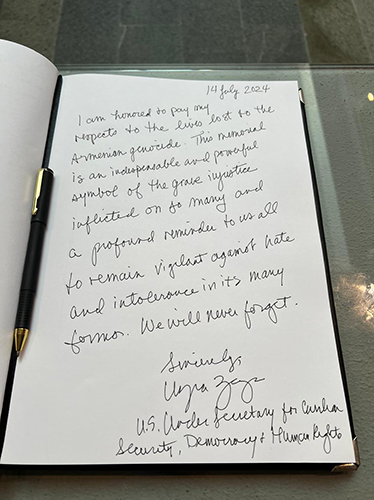 14 July 2024
I am honored to pay my
respects to the lives lost to the
Armenian genocide. This memorial
is an indespensable and powerful
symbol of the grave injustice
inflicted on so many and
a profound reminder to us all
to remain vigilant against hate
and intolerance in its many
forms. We will never forget.
Sincerely,
Uzra Zeya
U.S. Under Secretary for Civilian
Security, Democracy + Human Rights